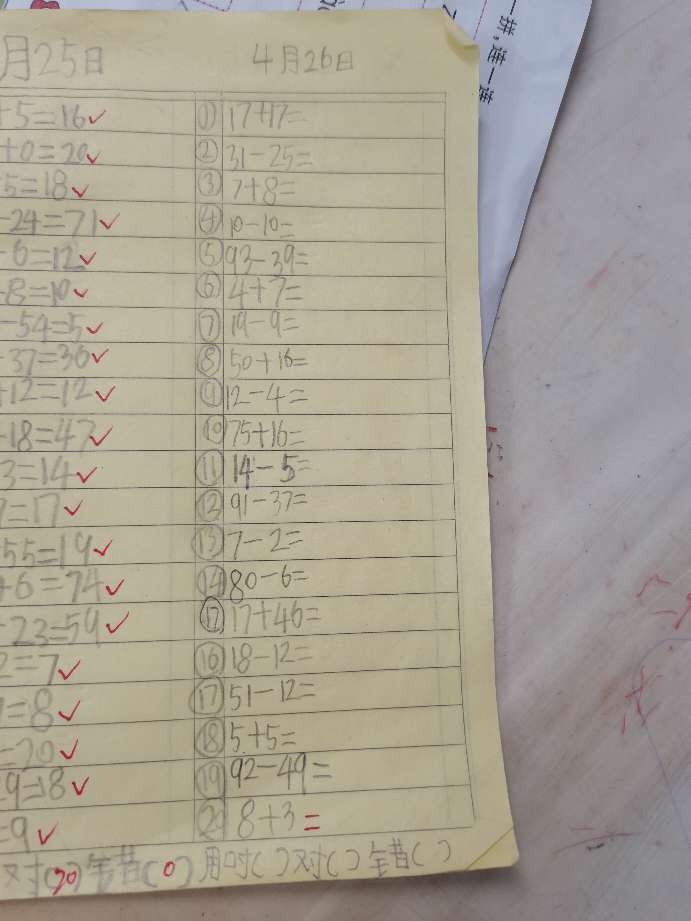 月25日 4月26日
+5=16✓ ① 17+17=
+0=20✓ ② 31-25=
-5=18✓ ③ 7+8=
-24=71✓ ④ 10-10=
-6=12✓ ⑤ 93-39=
-8=10✓ ⑥ 4+7=
-54=5✓ ⑦ 19-9=
-37=36✓ ⑧ 50+16=
+12=12✓ ⑨ 12-4=
-18=47✓ ⑩ 75+16=
3=14✓ ⑪ 14-5=
7=17✓ ⑫ 91-37=
55=19✓ ⑬ 7-2=
+6=74✓ ⑭ 80-6=
-23=59✓ ⑰ 17+46=
2=7✓ ⑯ 18-12=
=8✓ ⑰ 51-12=
=20✓ ⑱ 5+5=
9=18✓ ⑲ 92-49=
=9✓ ⑳ 8+3=
对(20)错(0) 用时( )对( )错( )